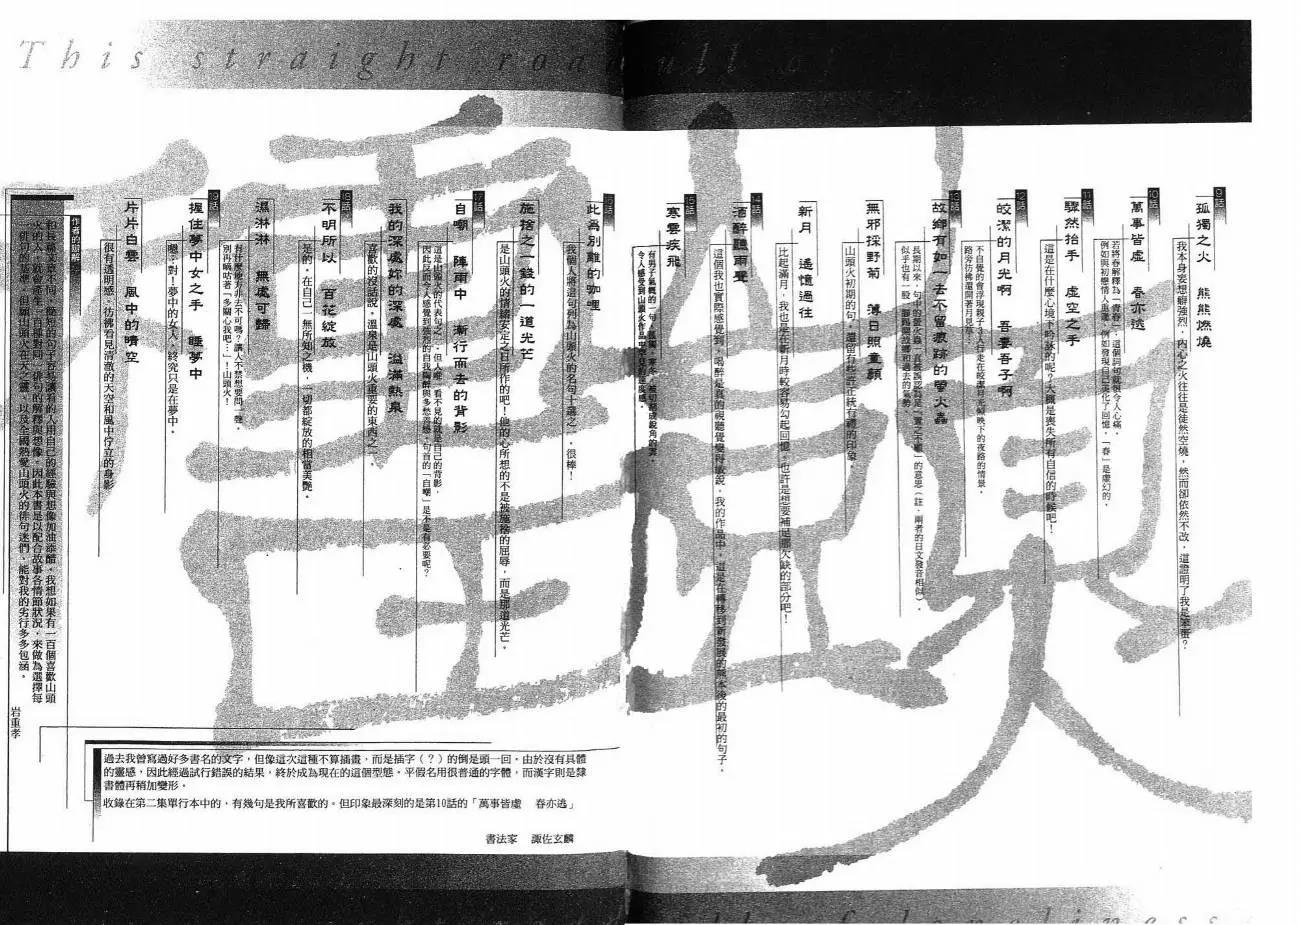 This straight road full of
9話
孤獨之火　熊熊燃燒
我本身妄想癖強烈，內心之火往往是徒然空燒，然而卻依然不改，這證明了我是笨蛋？
10話
萬事皆虛　春亦逃
若將春解釋為「青春」，這個詞句就很令人心痛，
例如與初戀情人重逢，例如發現自己美化了回憶，「春」是虛幻的。
11話
驟然抬手　虛空之手
這是在什麼心境下吟詠的呢？大概是喪失所有自信的時候吧！
12話
皎潔的月光啊　吾妻吾子啊
不自覺的會浮現親子3人行走在皎潔月光傾映下的夜路的情景，
路旁彷彿還開著月見草。
13話
故鄉有如一去不留痕跡的螢火蟲
無邪採野菊　薄日照童顏
山頭火初期的句，還留有些許正統有禮的印象。
新月　遙憶過往
比起滿月，我也是在新月時較容易勾起回憶，也許是想要補足那欠缺的部分吧！
14話
酒醉聽雨聲
這個我也實際感覺到，喝醉是真的視聽覺變得敏銳，我的作品中，這是在轉移到新發展的熊本後的最初的句子。
15話
寒雲疾飛
此為別離的咖哩
我個人將這句列為山頭火的名句十選之一，很棒！
施捨之一錢的一道光芒
是山頭火的情緒安定之日所作的吧！他的心所想的不是被施捨的屈辱，而是那道光芒。
17話
自嘲　陣雨中　漸行而去的背影
這是山頭火的代表句之一，但人唯一看不見的就是自己的背影，
因此反而令人感覺到強烈的自我陶醉與多愁善感，句首的「自嘲」是不是有必要呢？
我的深處妳的深處　溢滿熱泉
喜歡的沒話說，溫泉是山頭火重要的東西之一。
18話
不明所以　百花綻放
是的，在自己一無所知之機，一切都綻放的相當美艷。
濕淋淋　無處可歸
有什麼辦法非去不可嗎？讓人不禁想要問一聲，
別再嘀咕著「多關心我吧！」！山頭火！
19話
握住夢中女之手　睡夢中
嗯…對！夢中的女人，終究只是在夢中。
片片白雲　風中的晴空
很有透明感，彷彿看見清澈的天空和風中佇立的身影
作者的辯解
和長篇文章不同，簡短的句子容易讓看的人用自己的經驗與想像加油添醋，我想如果有一百個喜歡山頭
火的人，就會產生一百種對同一俳句的解釋與想像，因此本書是以配合故事各情節狀況，來做為選擇每
一俳句的基準，但願山頭火在天之靈，以及全國熱愛山頭火的俳句迷們，能對我的劣行多多包涵。
岩重孝
過去我曾寫過好多書名的文字，但像這次這種不算插畫，而是插字（？）的倒是頭一回。由於沒有具體
的靈感，因此經過試行錯誤的結果，終於成為現在的這個型態。平假名用很普通的字體，而漢字則是隸
書體再稍加變形。
收錄在第二集單行本中的，有幾句是我所喜歡的。但印象最深刻的是第10話的「萬事皆虛　春亦逃」
書法家　諏佐玄麟
full of loneliness